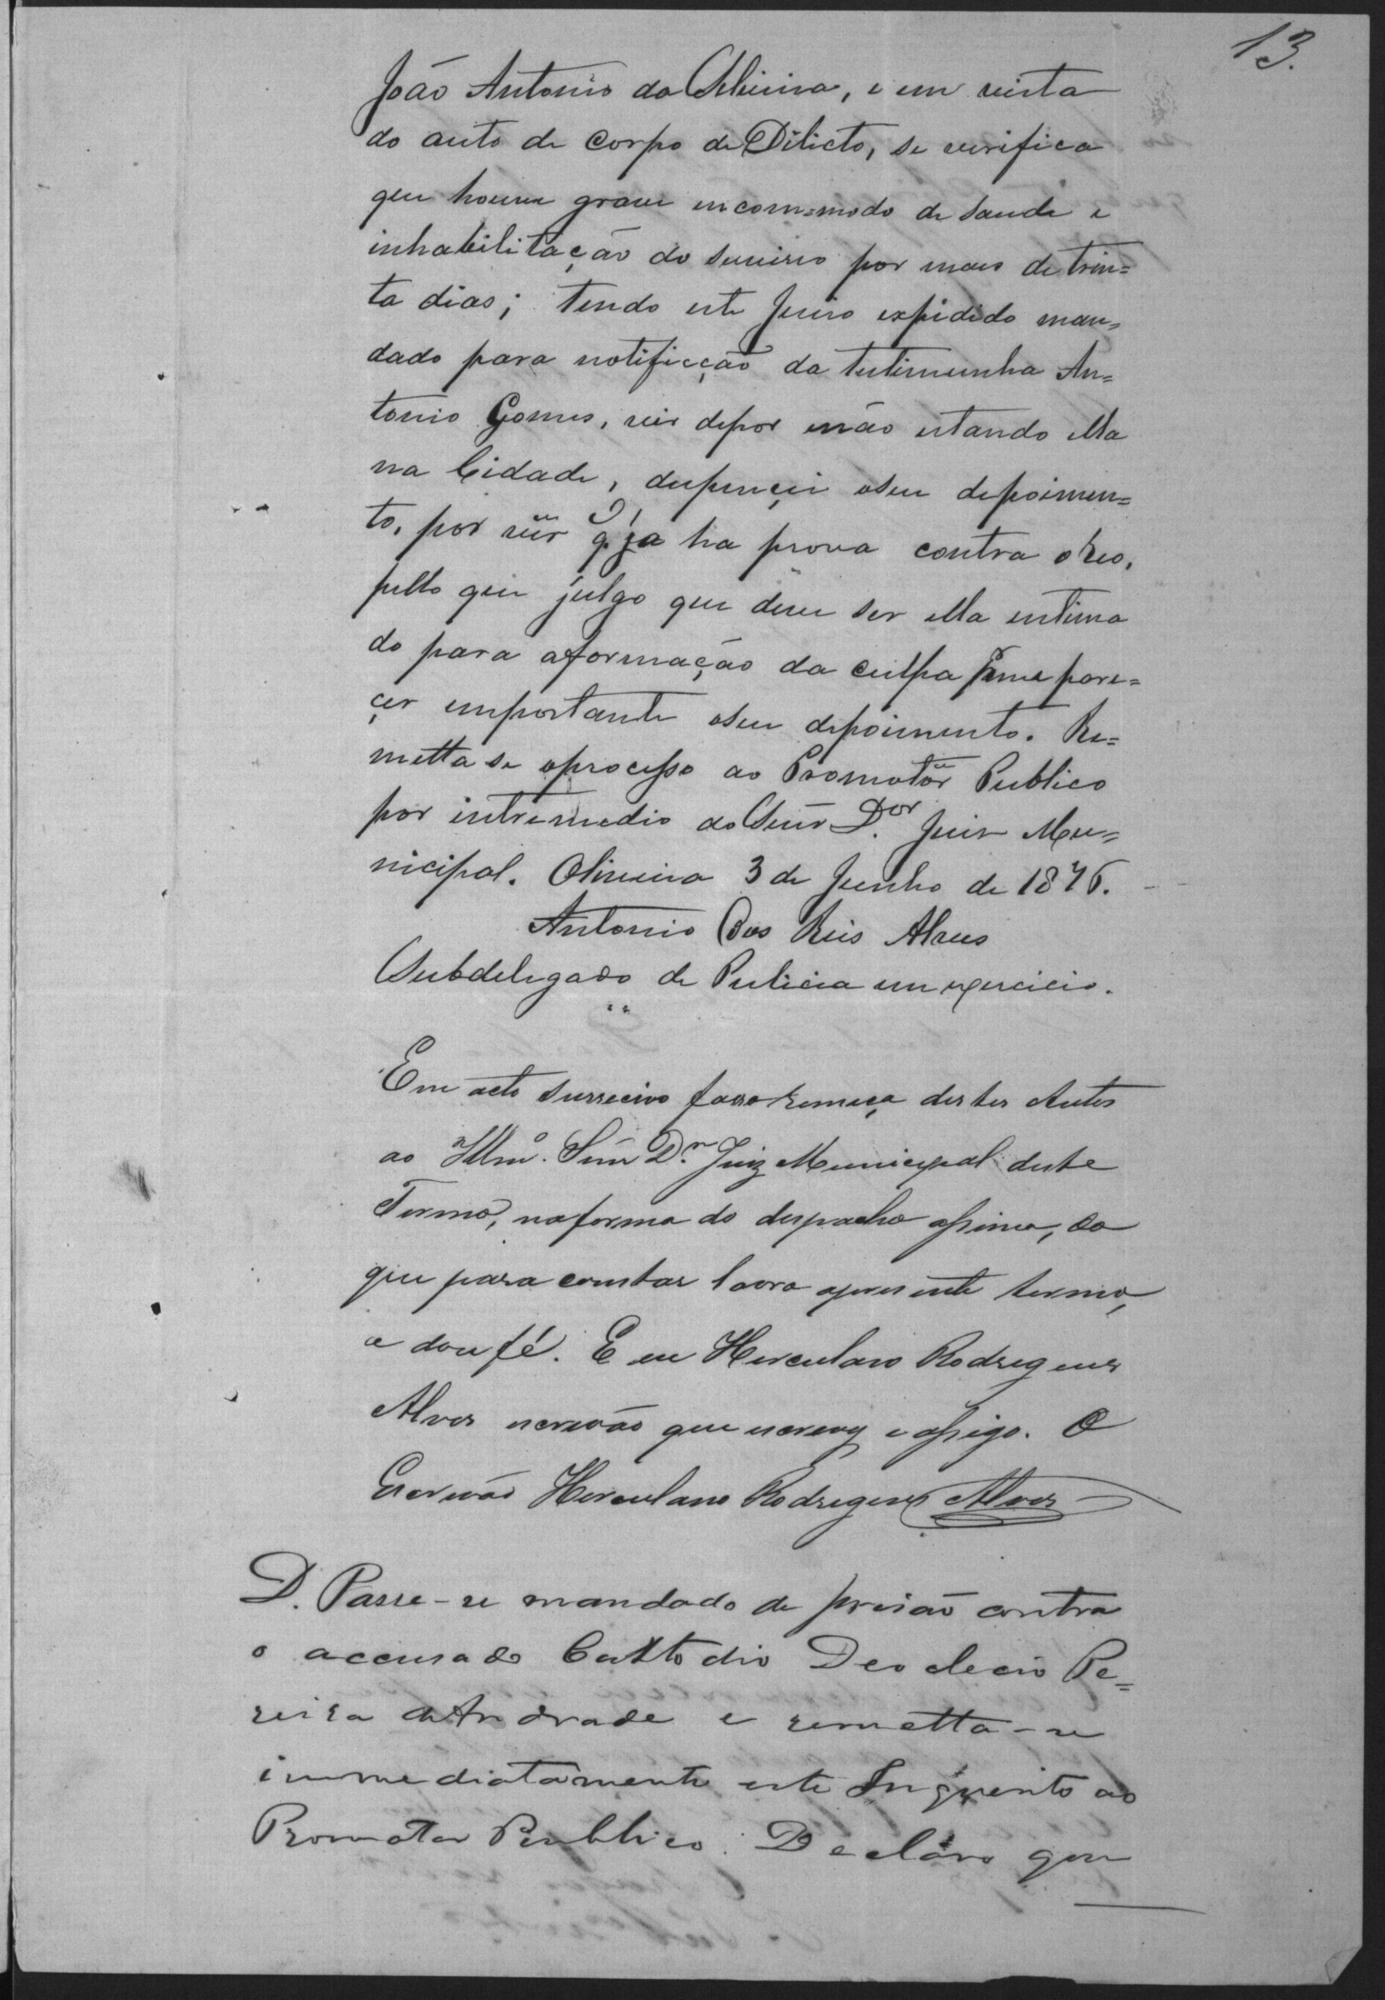 13.
João Antonio da Silveira, e em vista
do auto de corpo de Dilicto, se verifica
que houve grave incom=modo de saude e
inhabilitação do serviço por mais de trin=
ta dias; tendo este Juiso expidido man=
dado para notificção da testimunha An=
tonio Gomes, vir depor e não estando ella
na Cidade, dispencei o seu depoimen=
to, por vêr q. já ha prova contra o Reo,
pello que julgo que deve ser ella intima
do para a formação da culpa p.r me pare=
çer importante o seu depoimento. Re=
metta se o processo ao Promotôr Publico
por intremedio do Senr D.or Juis Mu=
nicipal. Oliveira 3 de Junho de 1876.
Antonio dos Reis Alves
Subdelegado de Pulicia em exercicio.
Em acto sussecivo faço remeça destes Autos
ao Illmo. Senr D.r Juiz Municipal deste
Termo, na forma do despacho assima, do
que para constar lavro o presente termo,
e dou fé. E eu Herculano Rodrigues
Alves escrivão que escrevy e assigo. O
Escrivão Herculano Rodrigues Alves
D. Passe-se mandado de prisão contra
o accusado Custodio Deoclecio Pe=
reira de Andrade e remetta-se
immediatamente este Inquerito ao
Promotor Publico. Declaro que